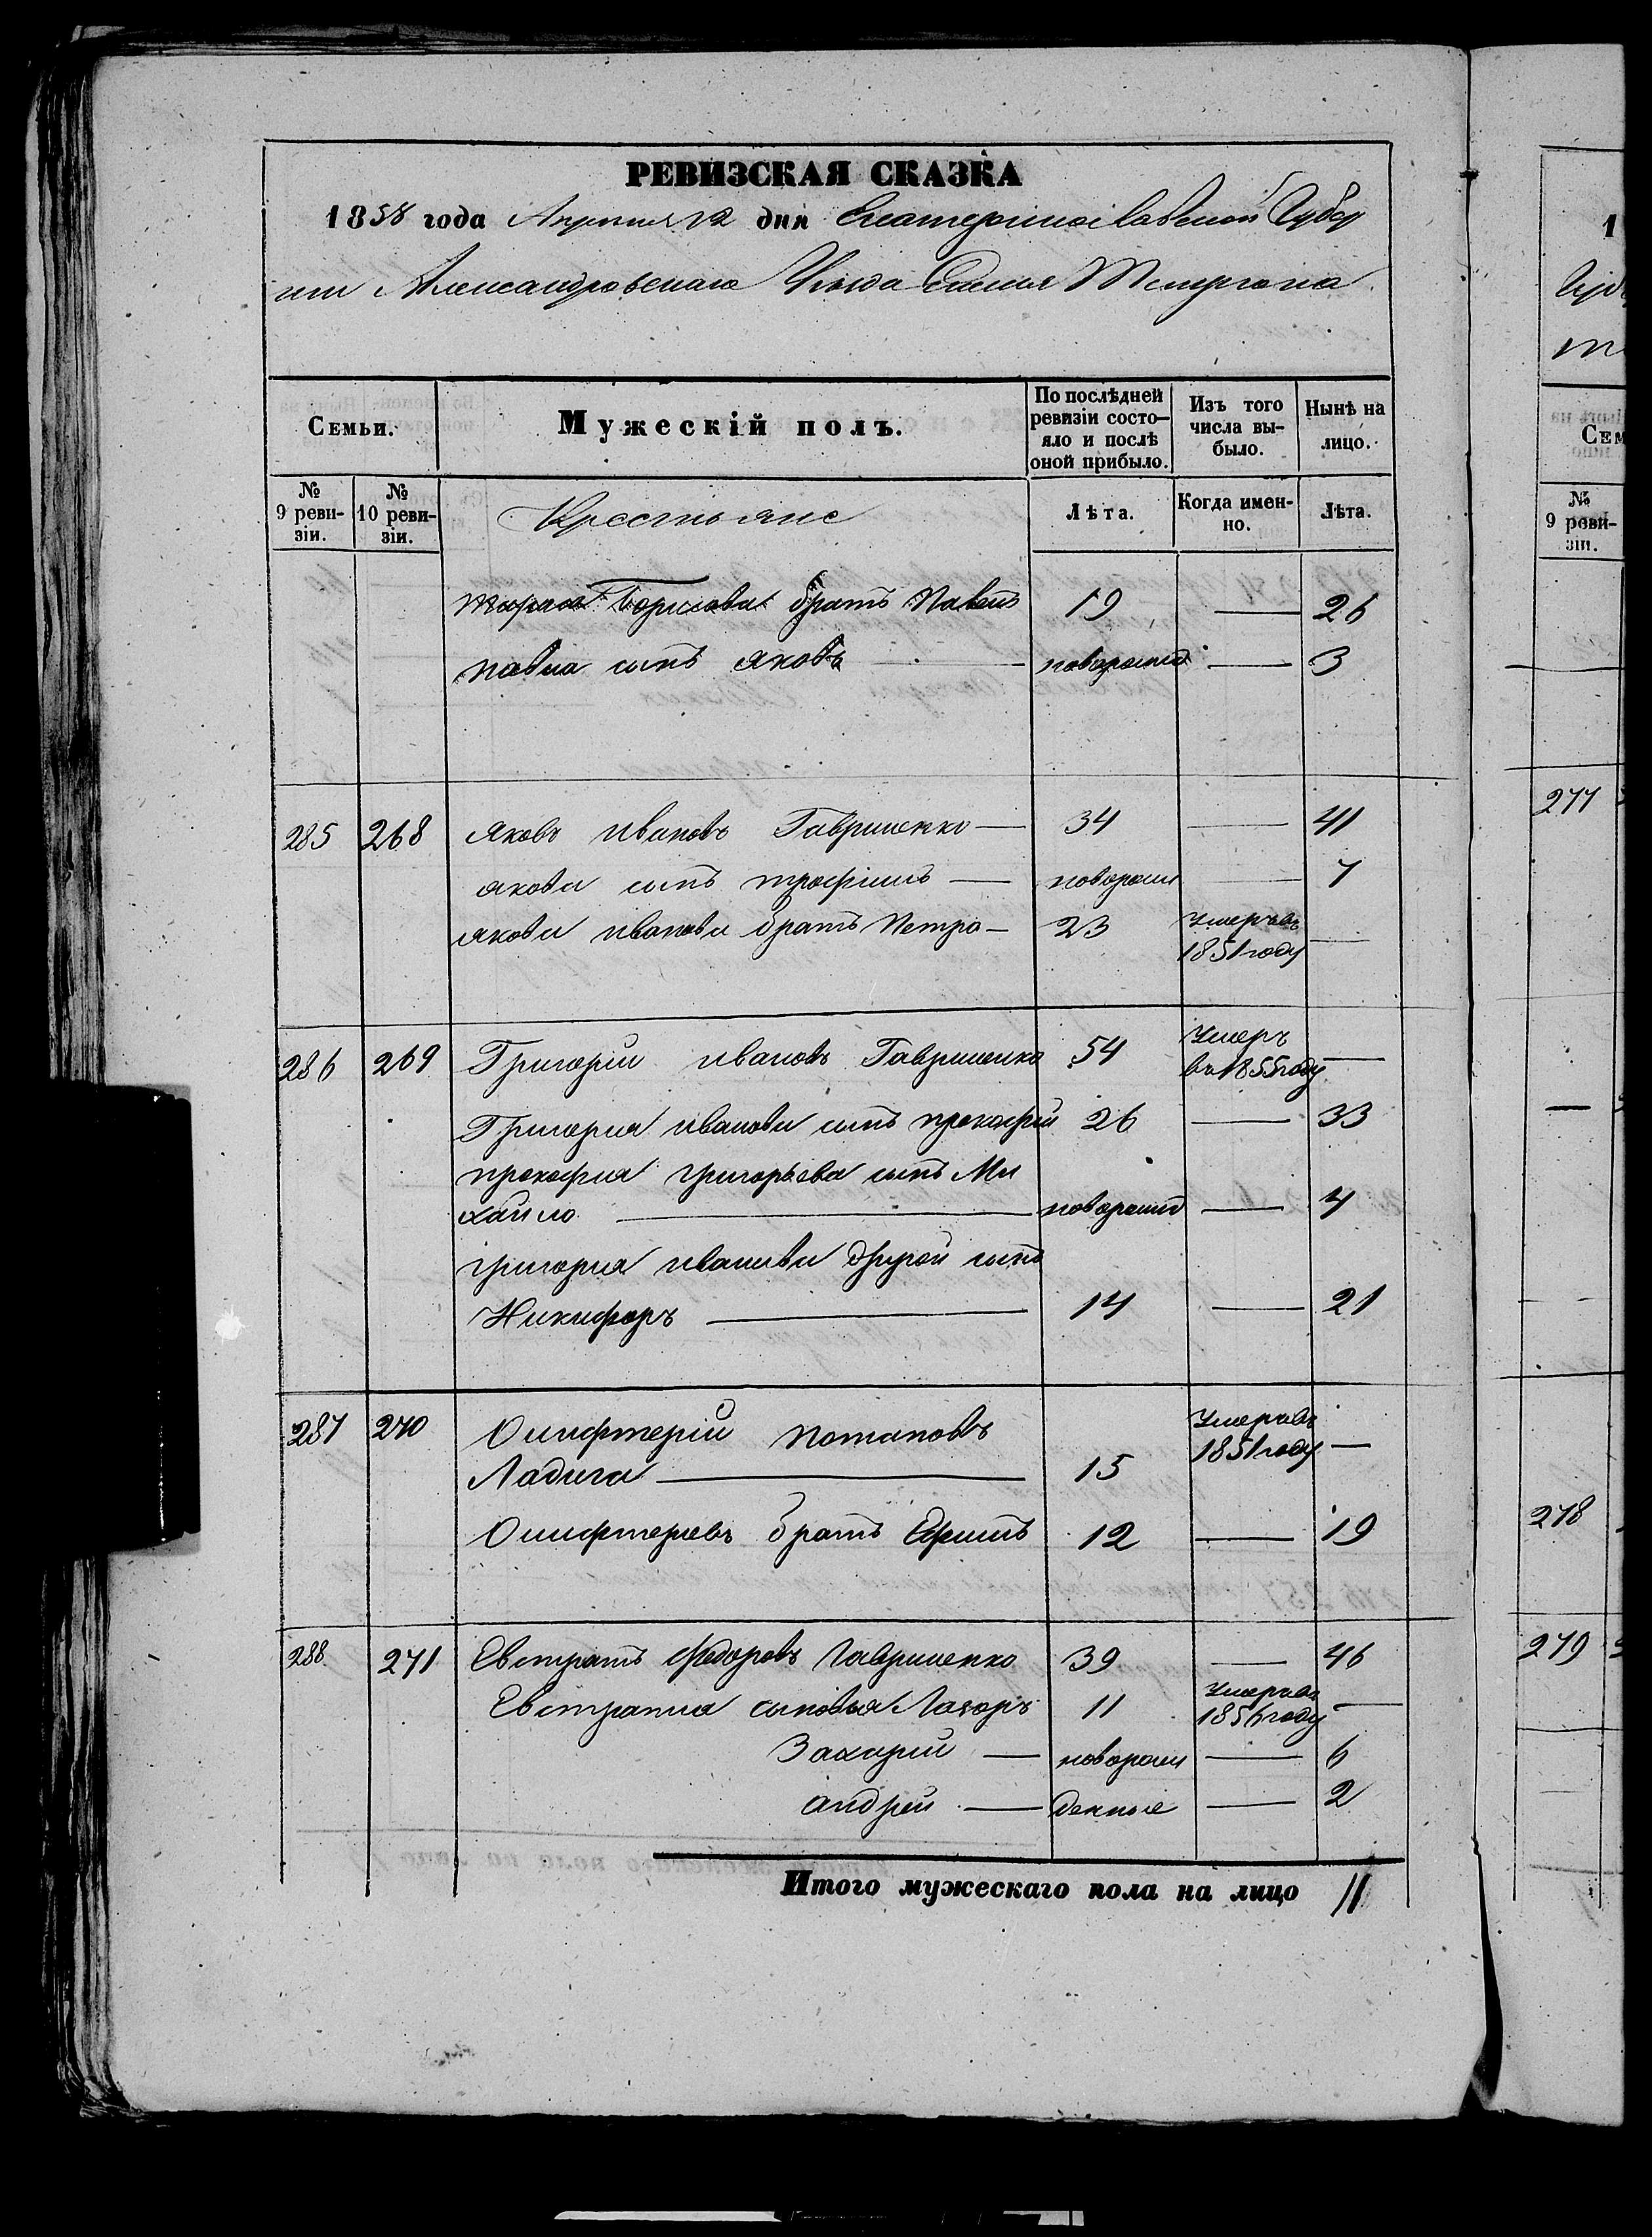 РЕВИЗСКАЯ СКАЗКА
1858 года Апреля 12 дня Екатеринославской Губер
нии Александровскаго Уезда Селія
Семьи. Мужескій полъ. По послѣдней ревизіи состояло и послѣ оной прибыло. Изъ того числа выбыло. Нынѣ на лицо.
№ 9 ревизіи. № 10 ревизіи. Крестьяне Лѣта. Когда именно. Лѣта.
Борисова братъ Павелъ 19 — 26
павла сынъ яковъ — новорожд — 3
285 268 яковъ ивановъ Гавришенко — 34 — 41
якова сынъ трофимъ — новорожд — 7
якова иванова братъ Петро — 23 Умеръ въ 1851 году —
286 269 Григорій ивановъ Гавришенко 54 Умеръ въ 1855 году —
Григорія иванова сынъ прокофій 26 — 33
прокофія григорьева сынъ Ми
хайло — новорожд — 4
григорія иванова другой сынъ
Никифоръ — 14 — 21
287 270 Олифтерій потаповъ
Ладыга — 15 Умеръ въ 1851 году —
Олифтеріевъ братъ Ефимъ 12 — 19
288 271 Евстратъ Федоровъ Гавришенко 39 — 46
Евстратія сыновья Лазоръ 11 Умеръ въ 1856 году —
Захарій — новорожд — 6
андрей — денные — 2
Итого мужескаго пола на лицо 11
1
277
278
279
Сем
№ 9 ревизіи.